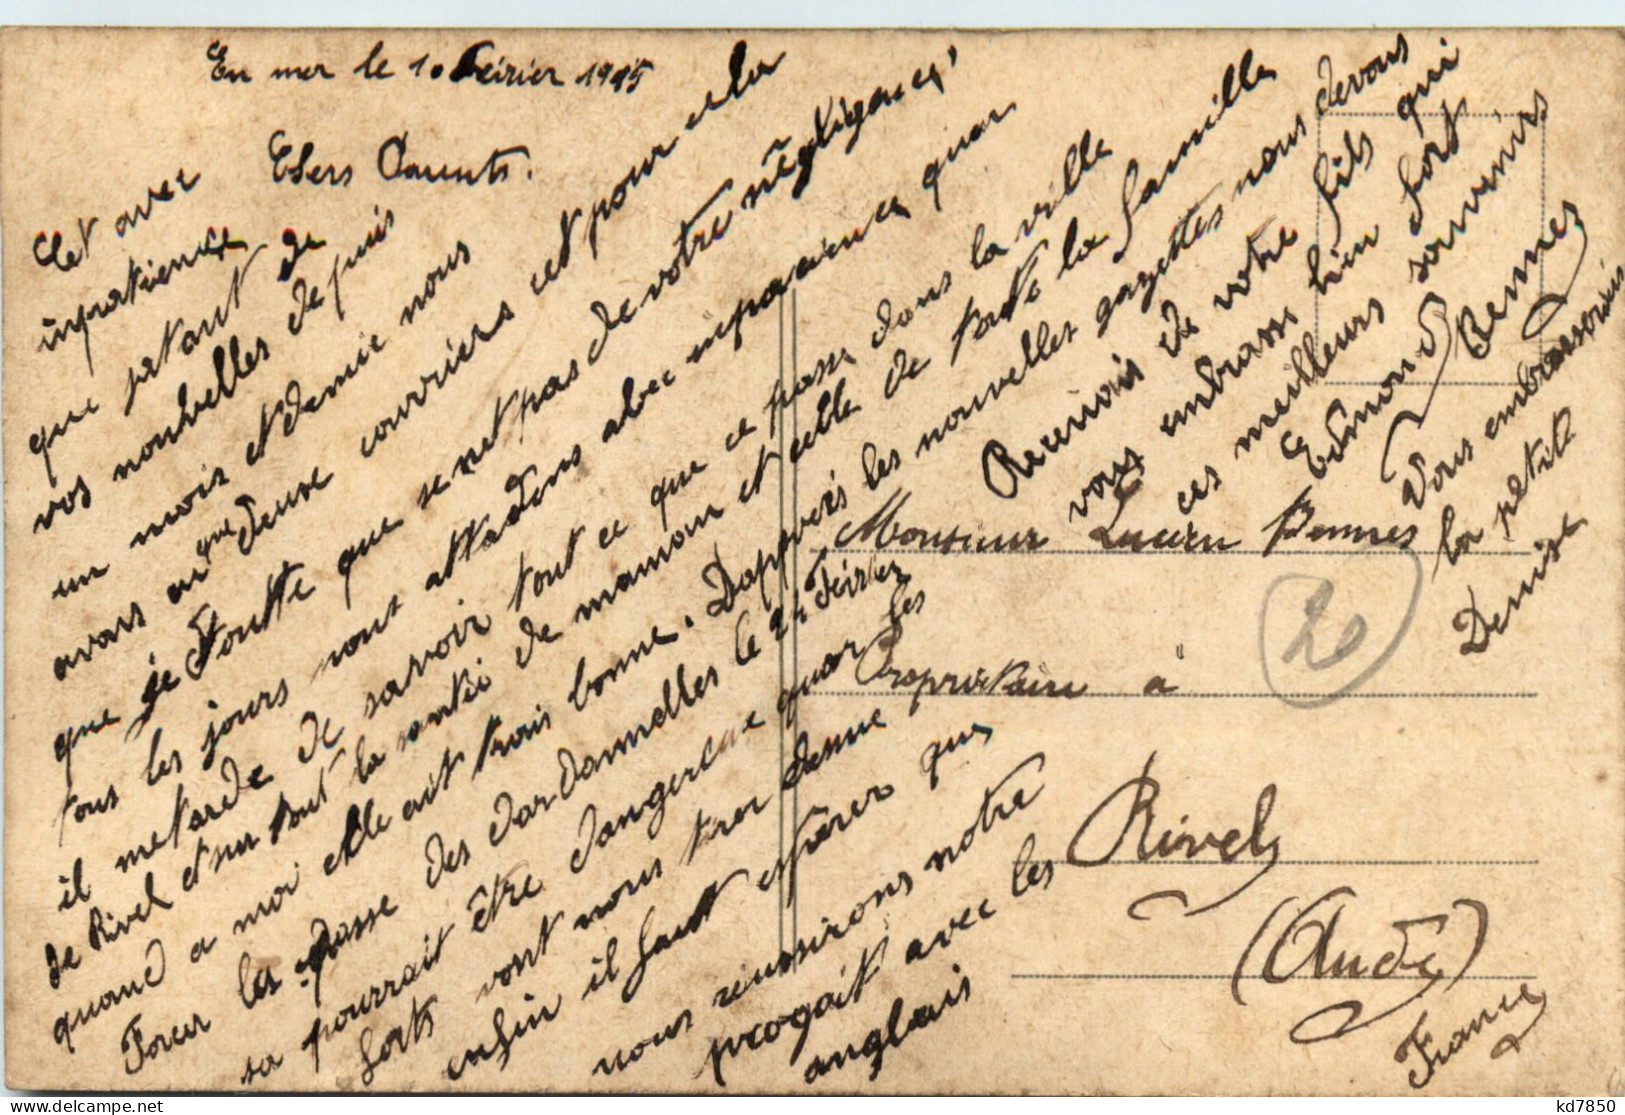 En mer le 10 Feirier 1915
Chers Parents.
Cet avec
inpatience
que jatant de
vos nouvelles depuis
un mois et demie nous
avons eu que deuse courriers cet pour cela
que je doutte que se net pas de votre négligence,
tous les jours nous attadons avec inpacience quar
il metarde de savoir tout ce que ce passe dans la ville
de Rivel et sur tout la santée de maman et celle de toute la famille
quand a moi elle ait trais bonne. Dapprés les nouvelles gazettes nous devons
Forcer les passe des dardamelles le 24 Feirier
sa pourrait être dangereuse quar les
forts vont nous tirer desue
enfin il faut espèrer que
nous réussirons notre
progait avec les
anglais
Recevois de votre fils qui
vous embrasse bien fort
ces meilleurs souvenirs
Edmond Bennes
Vous embrasserais
la petite
Denise
Monsieur Lucien Bennes
Propriètaire à
Rivel
(Aude)
France
20
kd7850